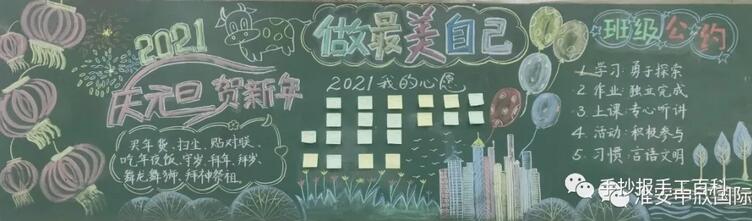 2021
庆元旦 贺新年
买年货、扫尘、贴对联、
吃年夜饭、守岁、拜年、拜岁、
舞龙舞狮、拜神祭祖
做最美自己
2021我的心愿
班级公约
1 学习:勇于探索
2 作业:独立完成
3 上课:专心听讲
4 活动:积极参与
5 习惯:言语文明
手抄报手工百科
淮安中欣国际